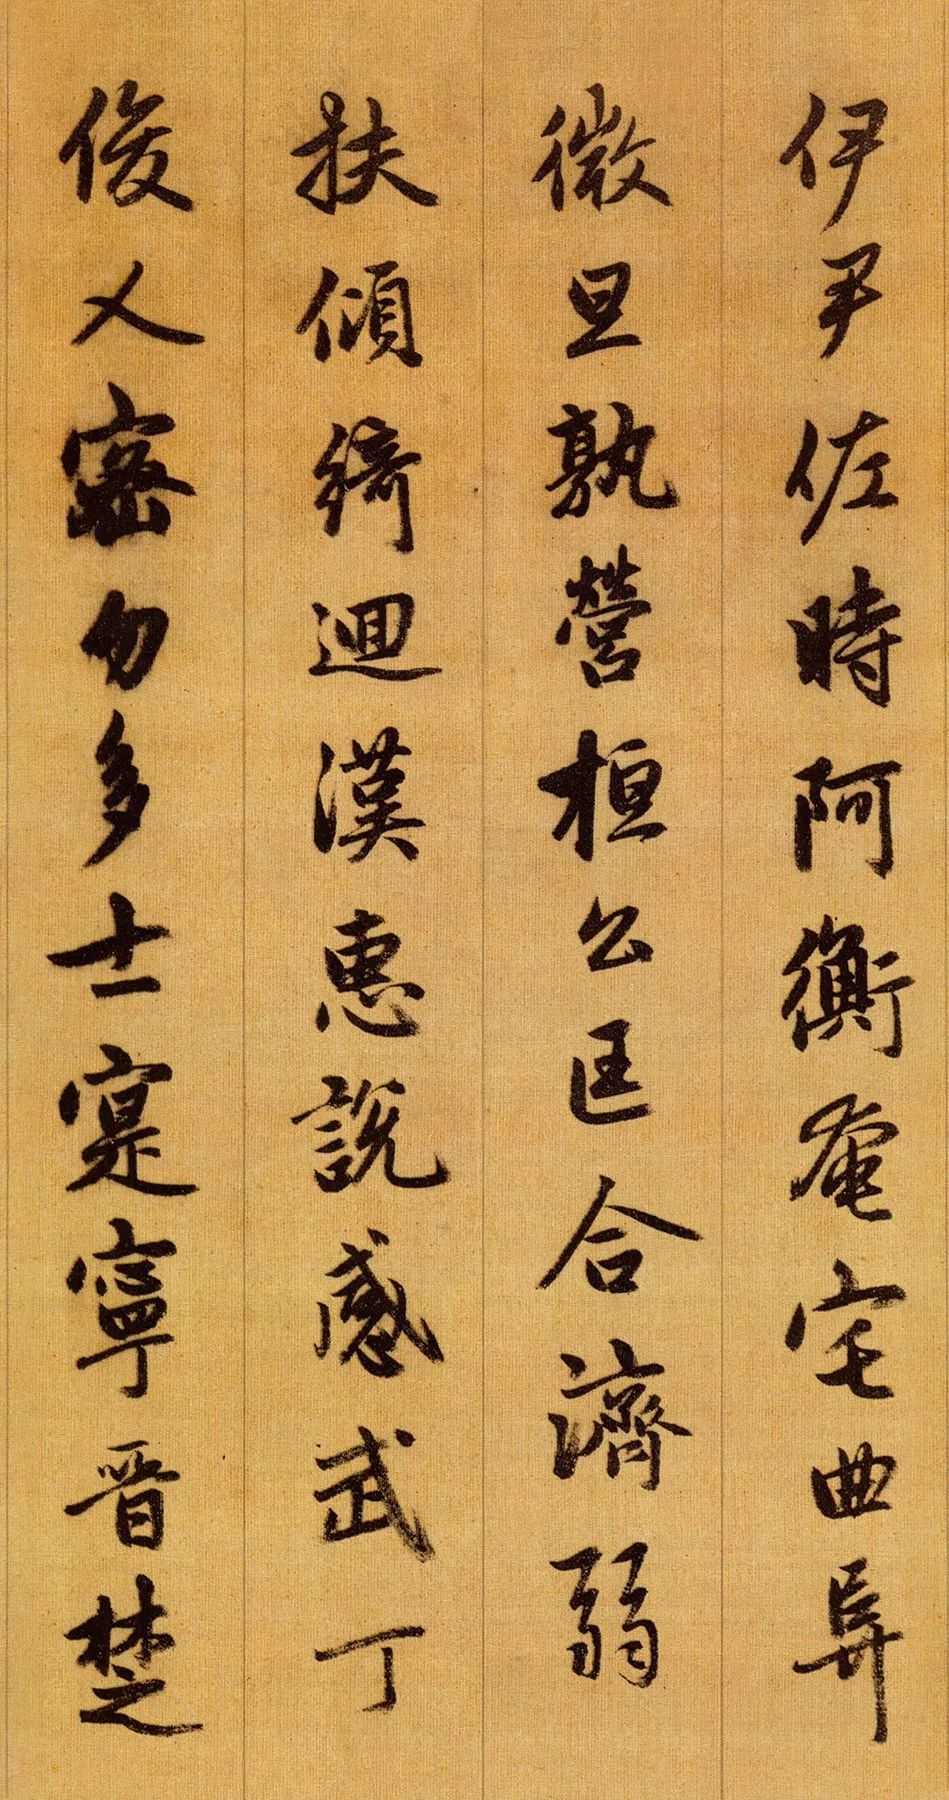 伊尹佐時阿衡奄宅曲阜
微旦孰營桓公匡合濟弱
扶傾綺迴漢惠説感武丁
俊乂密勿多士寔寧晉楚